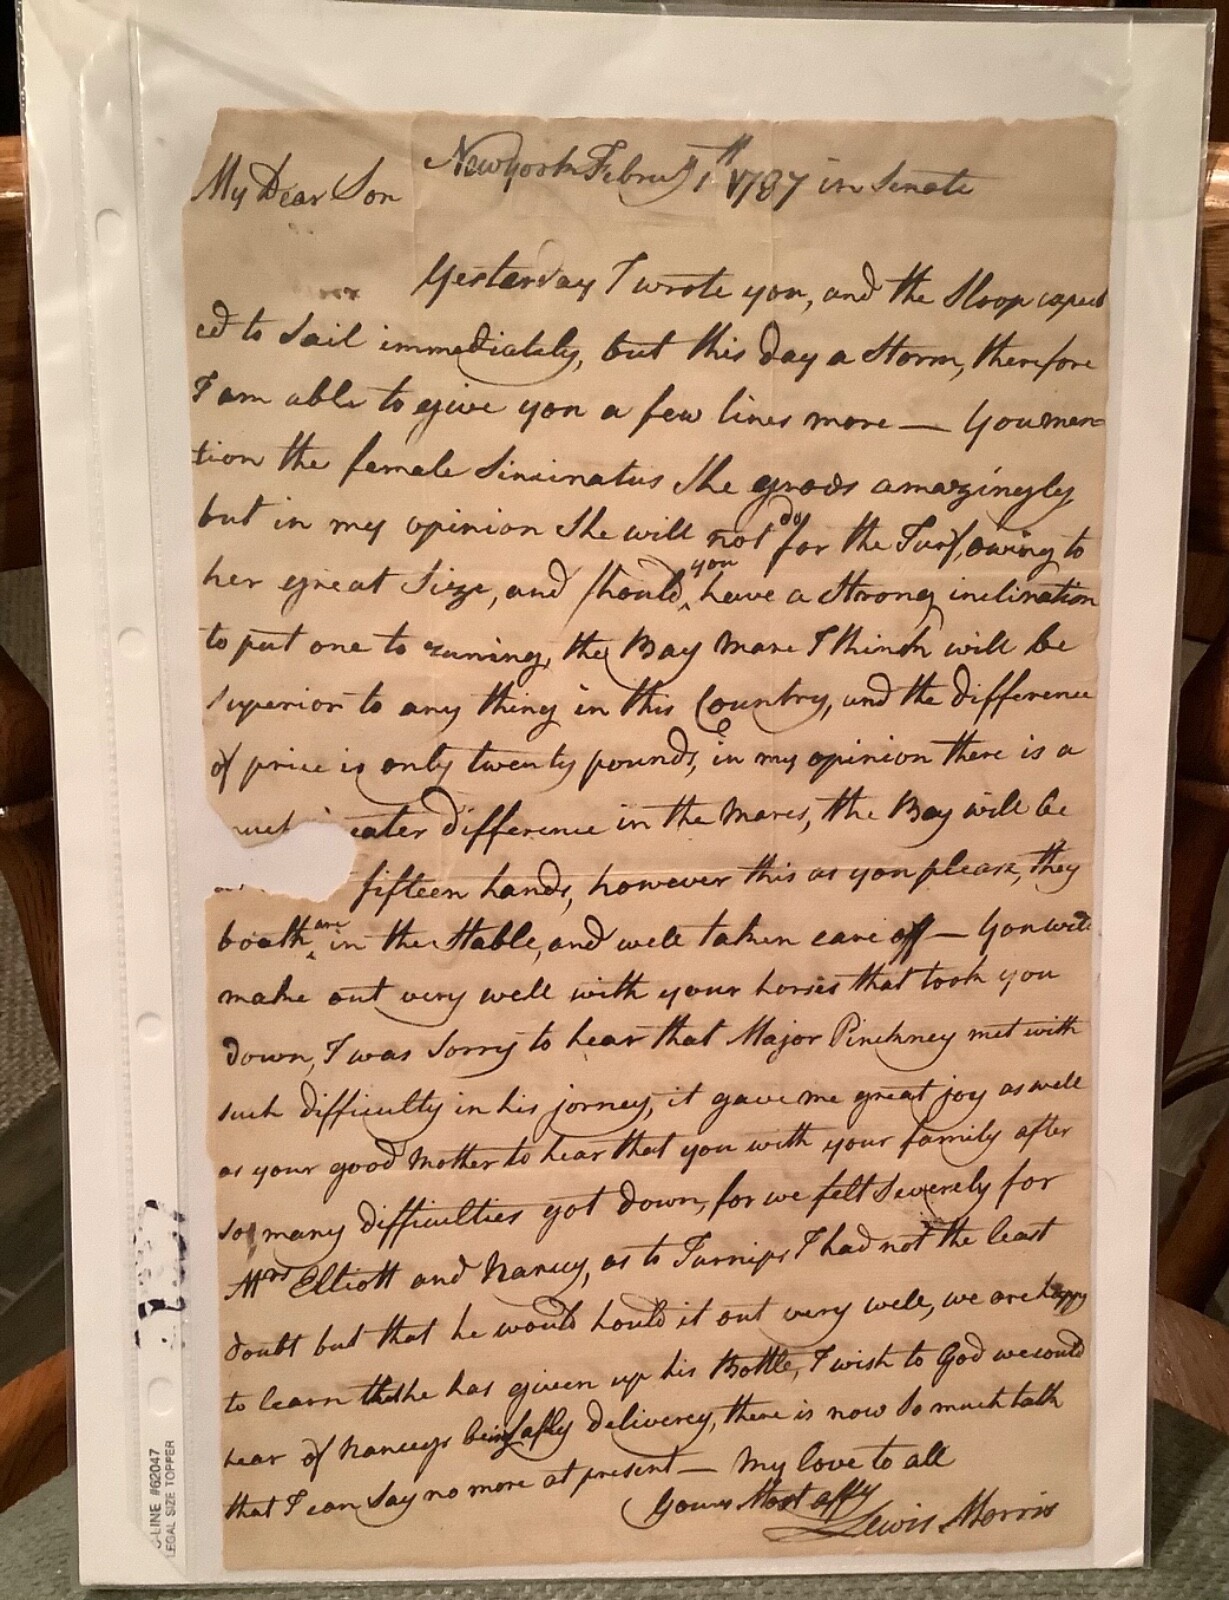 New York Februy 1th 1787 in Senate
My Dear Son
Yesterday I wrote you, and the Sloop expect
ed to Sail immediately, but this day a Storm, therefore
I am able to give you a few lines more — You men=
tion the female Sincinatus She grods amazingly
but in my opinion She will not do for the Turf, owing to
her great Size, and should you have a Strong inclination
to put one to runing, the Bay mare I think will be
superior to any thing in this Country, and the difference
of price is only twenty pounds, in my opinion there is a
eater difference in the mares, the Bay will be
fifteen hands, however this as you please, they
boath are in the Stable, and well taken care off — You will
make out very well with your horses that took you
down, I was Sorry to hear that Major Pinckney met with
such difficulty in his jorney, it gave me great joy as well
as your good Mother to hear that you with your family after
so many difficulties got down, for we felt Severely for
Mrs Elliott and Nancy, as to Turnips I had not the least
doubt but that he would hould it out very well, we are happy
to learn he has given up his Bottle, I wish to God we could
hear of Nancys being safly deliverey, there is now So much talk
that I can Say no more at present — My love to all
Yours Most affy
Lewis Morris
C-LINE #62047
LEGAL SIZE TOPPER